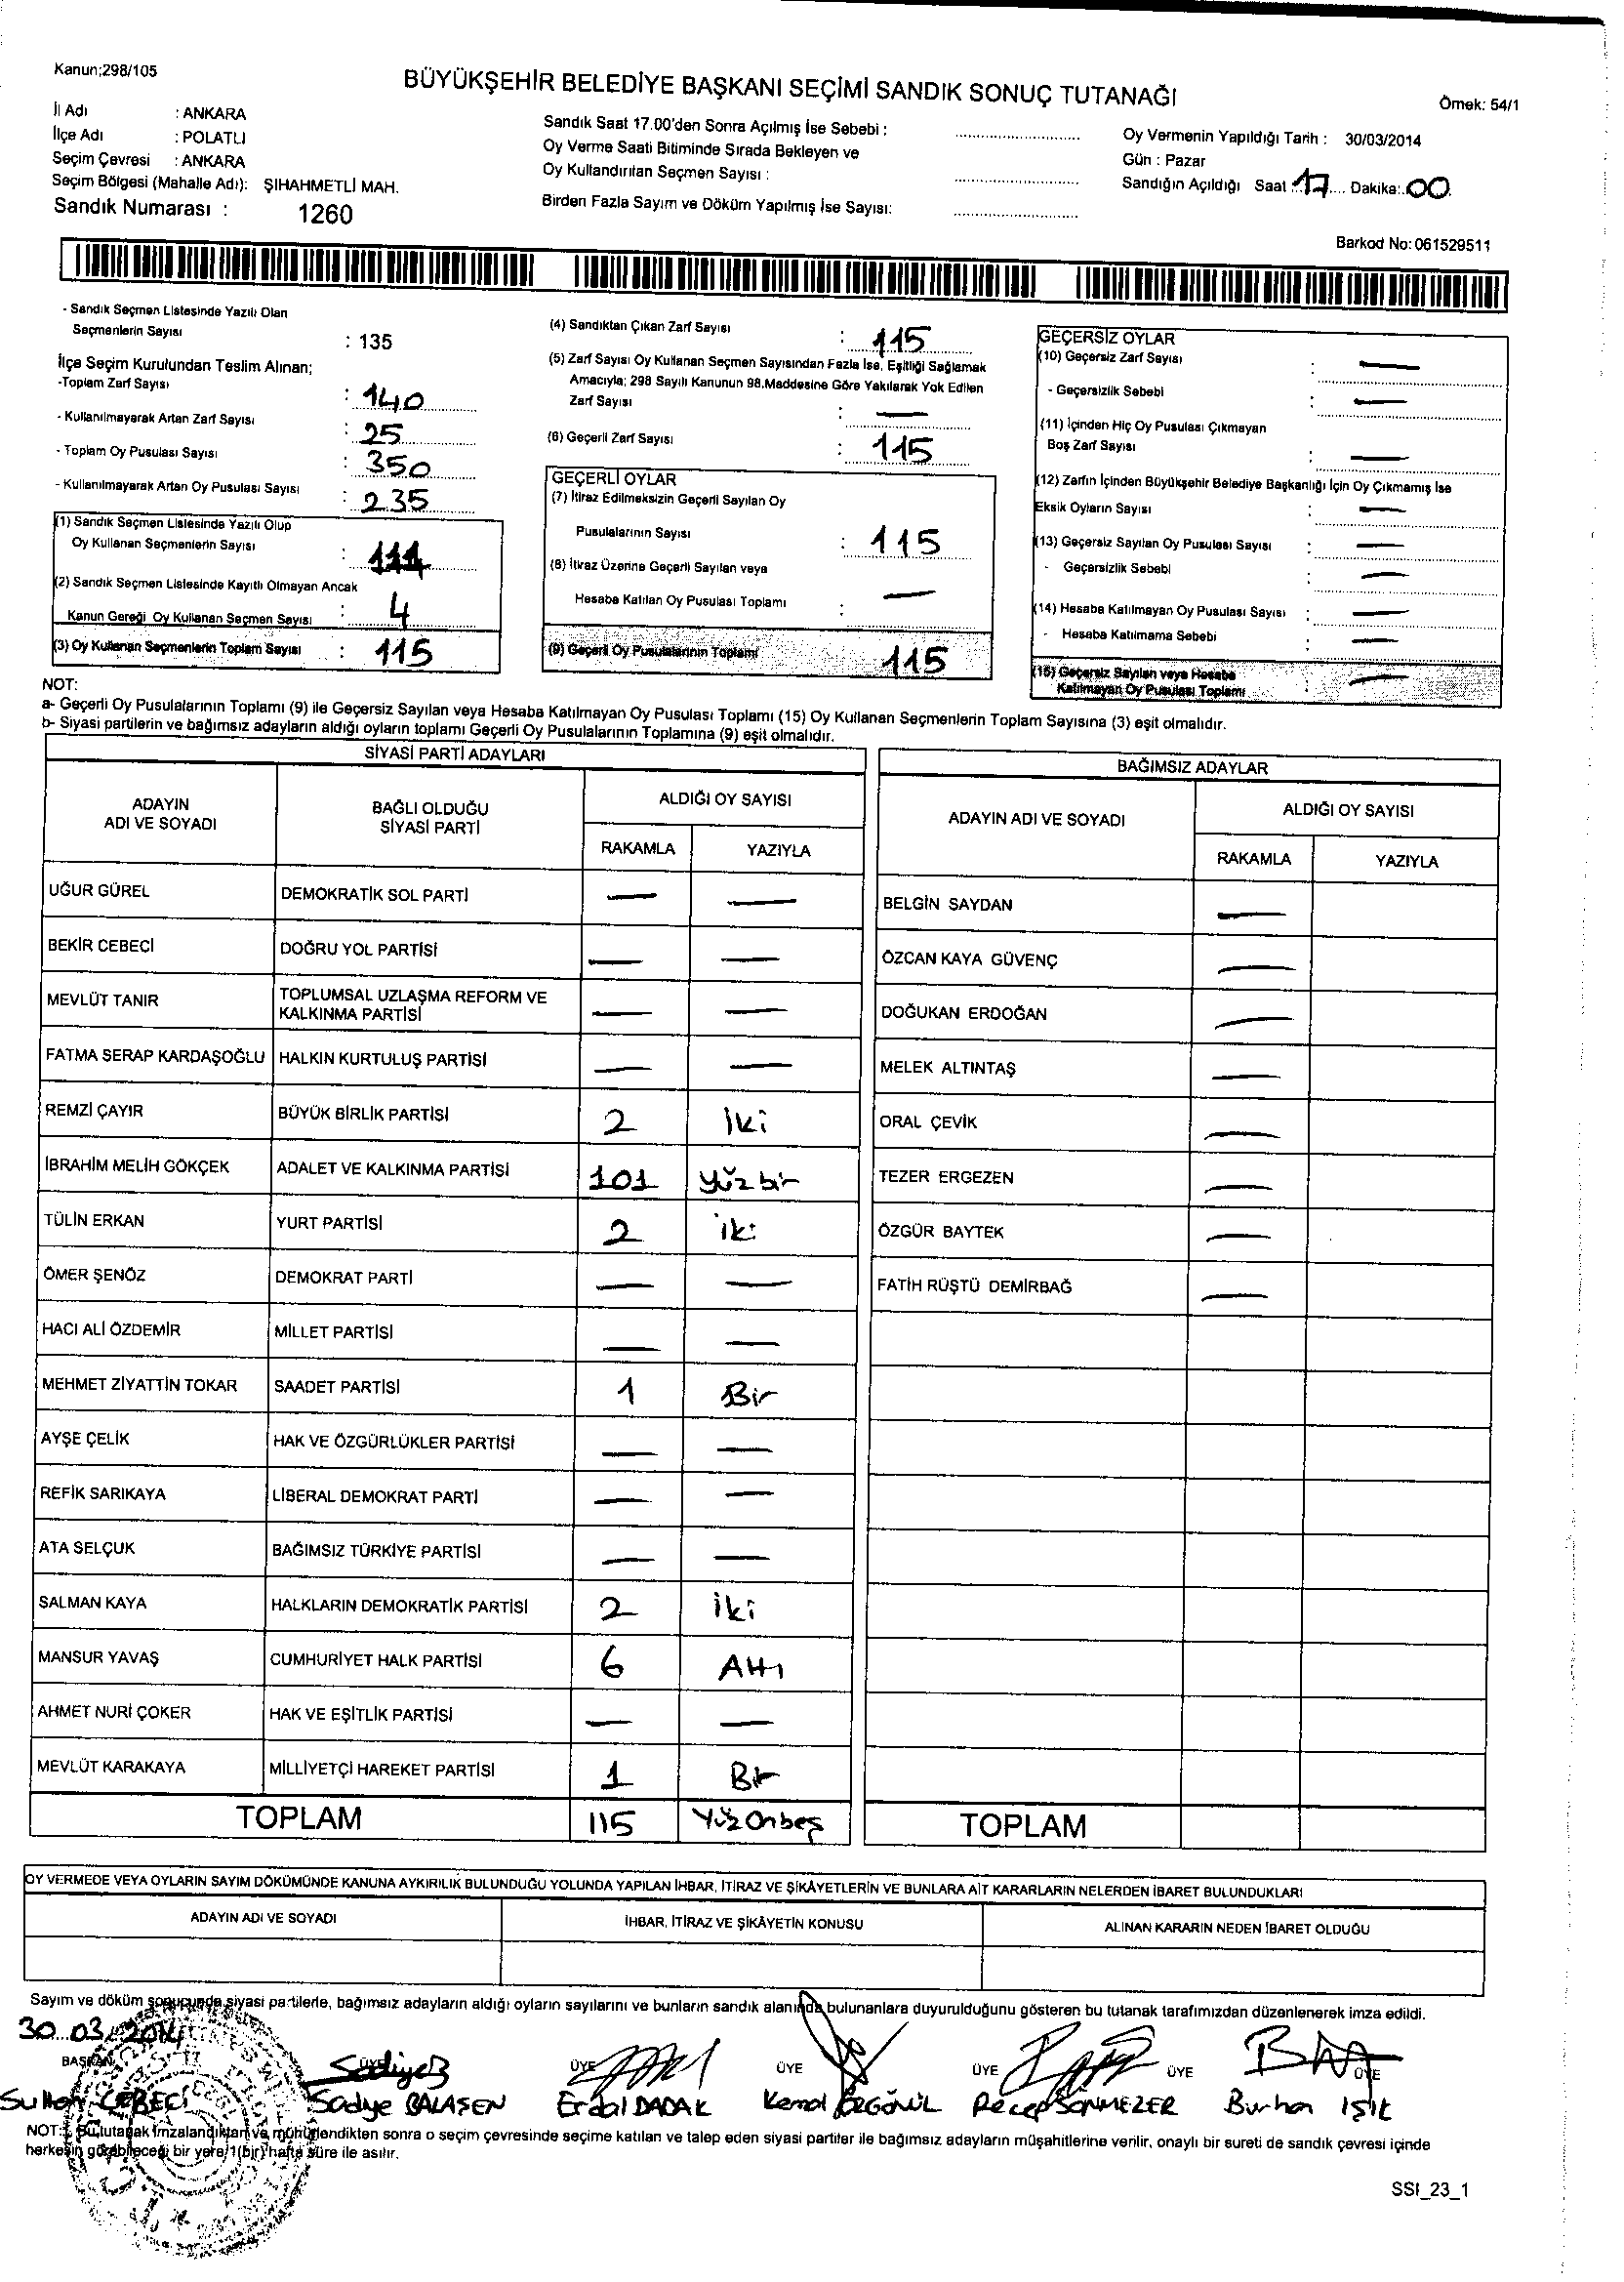 Kanun;298/105
BÜYÜKŞEHİR BELEDİYE BAŞKANI SEÇİMİ SANDIK SONUÇ TUTANAĞI
Örnek: 54/1
İl Adı : ANKARA
İlçe Adı : POLATLI
Seçim Çevresi : ANKARA
Seçim Bölgesi (Mahalle Adı): ŞIHAHMETLİ MAH.
Sandık Numarası : 1260
Sandık Saat 17.00'den Sonra Açılmış İse Sebebi :
Oy Verme Saati Bitiminde Sırada Bekleyen ve
Oy Kullandırılan Seçmen Sayısı :
Birden Fazla Sayım ve Döküm Yapılmış İse Sayısı:
Oy Vermenin Yapıldığı Tarih : 30/03/2014
Gün : Pazar
Sandığın Açıldığı Saat : 17 Dakika: 00
Barkod No: 061529511
- Sandık Seçmen Listesinde Yazılı Olan
Seçmenlerin Sayısı : 135
İlçe Seçim Kurulundan Teslim Alınan;
-Toplam Zarf Sayısı : 140
- Kullanılmayarak Artan Zarf Sayısı : 25
- Toplam Oy Pusulası Sayısı : 350
- Kullanılmayarak Artan Oy Pusulası Sayısı : 235
(1) Sandık Seçmen Listesinde Yazılı Olup
Oy Kullanan Seçmenlerin Sayısı : 111
(2) Sandık Seçmen Listesinde Kayıtlı Olmayan Ancak
Kanun Gereği Oy Kullanan Seçmen Sayısı : 4
(3) Oy Kullanan Seçmenlerin Toplam Sayısı : 115
(4) Sandıktan Çıkan Zarf Sayısı : 115
(5) Zarf Sayısı Oy Kullanan Seçmen Sayısından Fazla İse, Eşitliği Sağlamak
Amacıyla; 298 Sayılı Kanunun 98.Maddesine Göre Yakılarak Yok Edilen
Zarf Sayısı : —
(6) Geçerli Zarf Sayısı : 115
GEÇERLİ OYLAR
(7) İtiraz Edilmeksizin Geçerli Sayılan Oy
Pusulalarının Sayısı : 115
(8) İtiraz Üzerine Geçerli Sayılan veya
Hesaba Katılan Oy Pusulası Toplamı : —
(9) Geçerli Oy Pusulalarının Toplamı 115
GEÇERSİZ OYLAR
(10) Geçersiz Zarf Sayısı : —
- Geçersizlik Sebebi : —
(11) İçinden Hiç Oy Pusulası Çıkmayan
Boş Zarf Sayısı : —
(12) Zarfın İçinden Büyükşehir Belediye Başkanlığı İçin Oy Çıkmamış İse
Eksik Oyların Sayısı : —
(13) Geçersiz Sayılan Oy Pusulası Sayısı : —
- Geçersizlik Sebebi : —
(14) Hesaba Katılmayan Oy Pusulası Sayısı : —
- Hesaba Katılmama Sebebi : —
(15) Geçersiz Sayılan veya Hesaba
Katılmayan Oy Pusulası Toplamı : —
NOT:
a- Geçerli Oy Pusulalarının Toplamı (9) ile Geçersiz Sayılan veya Hesaba Katılmayan Oy Pusulası Toplamı (15) Oy Kullanan Seçmenlerin Toplam Sayısına (3) eşit olmalıdır.
b- Siyasi partilerin ve bağımsız adayların aldığı oyların toplamı Geçerli Oy Pusulalarının Toplamına (9) eşit olmalıdır.
SİYASİ PARTİ ADAYLARI
ADAYIN ADI VE SOYADI
BAĞLI OLDUĞU SİYASİ PARTİ
ALDIĞI OY SAYISI
RAKAMLA YAZIYLA
UĞUR GÜREL DEMOKRATİK SOL PARTİ — —
BEKİR CEBECİ DOĞRU YOL PARTİSİ — —
MEVLÜT TANIR TOPLUMSAL UZLAŞMA REFORM VE KALKINMA PARTİSİ — —
FATMA SERAP KARDAŞOĞLU HALKIN KURTULUŞ PARTİSİ — —
REMZİ ÇAYIR BÜYÜK BİRLİK PARTİSİ 2 İki
İBRAHİM MELİH GÖKÇEK ADALET VE KALKINMA PARTİSİ 101 yüzbir
TÜLİN ERKAN YURT PARTİSİ 2 iki
ÖMER ŞENÖZ DEMOKRAT PARTİ — —
HACI ALİ ÖZDEMİR MİLLET PARTİSİ — —
MEHMET ZİYATTİN TOKAR SAADET PARTİSİ 1 Bir
AYŞE ÇELİK HAK VE ÖZGÜRLÜKLER PARTİSİ — —
REFİK SARIKAYA LİBERAL DEMOKRAT PARTİ — —
ATA SELÇUK BAĞIMSIZ TÜRKİYE PARTİSİ — —
SALMAN KAYA HALKLARIN DEMOKRATİK PARTİSİ 2 iki
MANSUR YAVAŞ CUMHURİYET HALK PARTİSİ 6 Altı
AHMET NURİ ÇOKER HAK VE EŞİTLİK PARTİSİ — —
MEVLÜT KARAKAYA MİLLİYETÇİ HAREKET PARTİSİ 1 Bir
TOPLAM 115 Yüz Onbeş
BAĞIMSIZ ADAYLAR
ADAYIN ADI VE SOYADI
ALDIĞI OY SAYISI
RAKAMLA YAZIYLA
BELGİN SAYDAN —
ÖZCAN KAYA GÜVENÇ —
DOĞUKAN ERDOĞAN —
MELEK ALTINTAŞ —
ORAL ÇEVİK —
TEZER ERGEZEN —
ÖZGÜR BAYTEK —
FATİH RÜŞTÜ DEMİRBAĞ —
TOPLAM
OY VERMEDE VEYA OYLARIN SAYIM DÖKÜMÜNDE KANUNA AYKIRILIK BULUNDUĞU YOLUNDA YAPILAN İHBAR, İTİRAZ VE ŞİKÂYETLERİN VE BUNLARA AİT KARARLARIN NELERDEN İBARET BULUNDUKLARI
ADAYIN ADI VE SOYADI İHBAR, İTİRAZ VE ŞİKÂYETİN KONUSU ALINAN KARARIN NEDEN İBARET OLDUĞU
Sayım ve döküm sonucunda siyasi partilerle, bağımsız adayların aldığı oyların sayılarını ve bunların sandık alanında bulunanlara duyurulduğunu gösteren bu tutanak tarafımızdan düzenlenerek imza edildi.
30.03.2014
BAŞKAN ÜYE ÜYE ÜYE ÜYE ÜYE ÜYE
Sultan CEBECİ Sadiye BALAŞEN Erdal DADAK Kemal ÖRGÖNÜL Recep SÖNMEZER Burhan IŞIK
NOT: Bu tutanak imzalandıktan ve mühürlendikten sonra o seçim çevresinde seçime katılan ve talep eden siyasi partiler ile bağımsız adayların müşahitlerine verilir, onaylı bir sureti de sandık çevresi içinde
herkesin görebileceği bir yere 1(bir) hafta süre ile asılır.
SSI_23_1